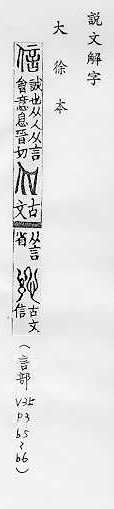 說文解字
大徐本
信
誠也从人从言
會意息晉切
古
文
从言
省
古文
信
(言部 V3上 P3 b5~b6)